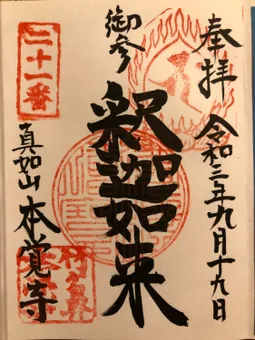 奉拝
令和三年九月十九日
御参
釈迦如来
二十一番
真如山 本覚寺